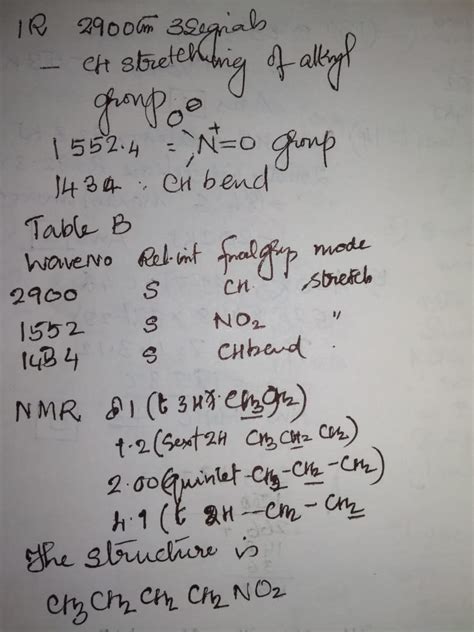 IR 2900cm 3Signals
- CH stretching of alkyl
group
1552.4 = N⁺=O group
O⊖
1434 : CH bend
Table B
WaveNo Rel.int funalgrp mode
2900 S CH stretch
1552 S NO2 "
1434 S CHbend
NMR 1 (t 3H CH3CH2)
1.2 (Sext 2H CH3CH2 CH2)
2.00 (quintet -CH2-CH2-CH2)
4.1 (t 2H --CH2-CH2
The structure is
CH3 CH2 CH2 CH2 NO2